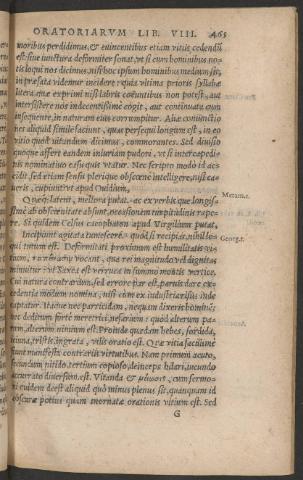 ORATORIARVM LIB. VIII. 465
moribus perdidimus, & euincentibus etiam vitiis, cedendũ
est: siue iunctura deformiter sonat, vt si cum hominibus no-
tis loqui nos dicimus, nisi hoc ipsum hominibus medium sit,
in præfata videmur incidere: quia vltima prioris syllabæ
litera, quæ exprimi nisi labris coëuntibus non potest, aut
intersistere nos indecentissimè cogit, aut continuata cum
insequente, in naturam eius corrumpitur. Aliæ coniunctio
nes aliquid simile faciunt, quas persequi longum est, in eo
vitio quod vitandum dicimus, commorantes. Sed diuisio
quoque affert eandem iniuriam pudori, vt si intercapedi-
nis nominatiuo casu quis vtatur. Nec scripto modò id ac-
cidit, sed etiam sensu plerique obscœnè intelligere, nisi ca-
ueris, cupiunt: vt apud Ouidium,
Quæque latent, meliora putat. ac ex verbis quæ longis-
simè ab obscœnitate absunt, occasionem turpitudinis rape-
re. Si quidem Celsus cacophaton apud Virgilium putat,
Incipiunt agitata tumescere. quod si recipias, nihil lo-
qui tutum est. Deformitati proximum est humilitatis vi-
tium, vocant, qua rei magnitudo vel dignitas
minuitur: vt Saxea est verruca in summo montis vertice.
Cui natura contrarium, sed errore par est, paruis dare ex-
cedentia modum nomina, nisi cùm ex industria risus inde
captatur. Itaque nec parricidam, nequam dixeris hominẽ:
nec deditum fortè meretrici, nefarium: quòd alterum pa-
rum, alterum nimium est. Proinde quædam hebes, sordida,
ieiuna, tristis, ingrata, vilis oratio est. Quæ vitia facillimè
fient manifesta contrariis virtutibus. Nam primum acuto,
secundum nitido, tertium copioso, deinceps hilari, iucundo
accurato diuersum est. Vitanda & μείωσις, cum sermo-
ni cuidem deest aliquid quò minus plenus sit, quanquam id
obscuræ potius quàm inornatæ orationis vitium est. Sed
G
Metam.1.
Georg.1.